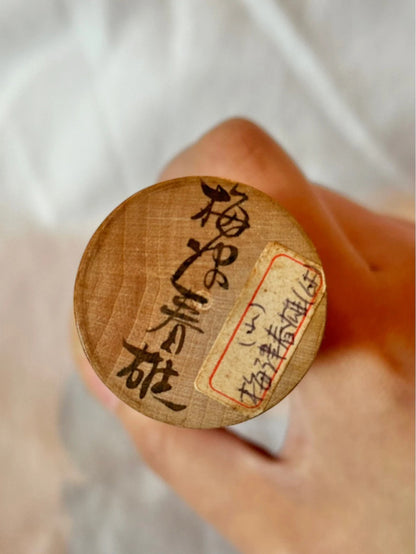 梅津春雄
(山)
梅津春雄